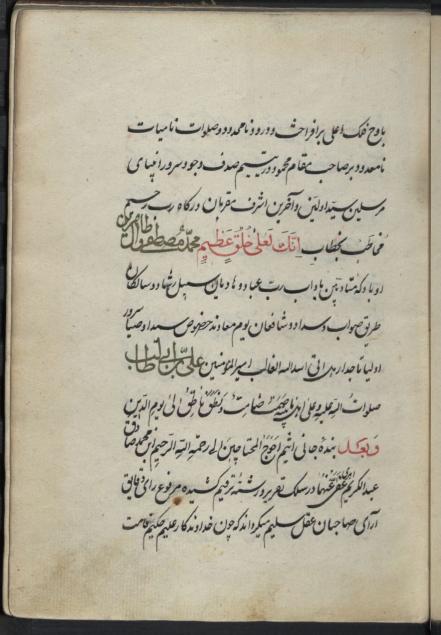 باوج فلک اعلی برافراخت و درود نامحدود و صلوات نامیات
نامعدود بر صاحب مقام محمود در یتیم صدف وجود سرور انبیای
مرسلین سید اولین و آخرین اشرف مقربان درکاه رب رحیم
مخاطب بخطاب انک لعلی خلق عظیم محمد مصطفی و آل
او باد که منادیین باداب رب عباد و هادیان سبیل رشاد و سالکان
طریق صواب و سداد و شافعان یوم معاد و بخصوص سید اوصیا سرور
اولیا تاجدار هل اتی اسد الله الغالب امیر المؤمنین علی بن ابی طالب
صلوات الله علیه و علی اهل بیته صامت و نطق ناطق الی یوم الدین
و بعد بنده جانی اثیم احوج المحتاجین الی رحمة الله الرحیم ابن محمد صادق
عبدالکریم عفی عنهما در سلک تحریر و رشته ترقیم کشیده مرفوع رای فایق
آرای صاحبان عقل سلیم میکرداند که چون خداوند کار علیم حکیم قامت